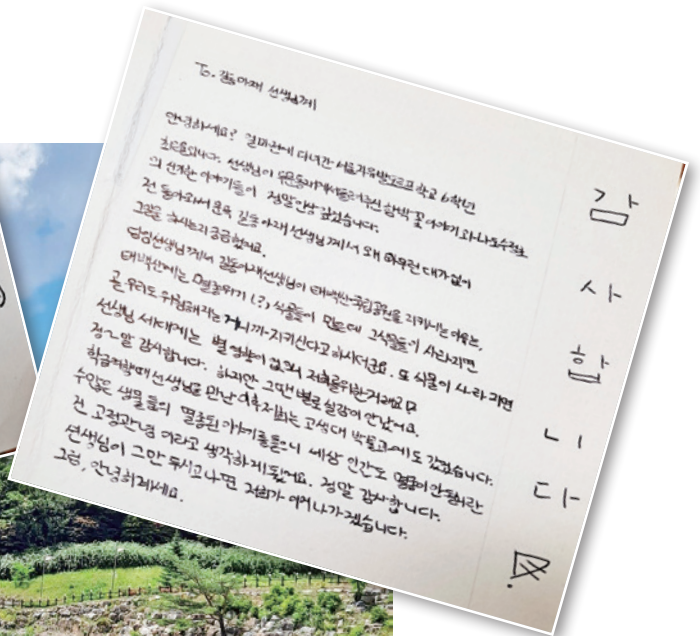 To. 길동아재 선생님께
안녕하세요? 얼마전에 다녀간 서울자유발도르프 학교 6학년
선생님이 들려주신 함박꽃 이야기와 나도수정초
의 신기한 이야기들이 정말 인상 깊었습니다.
전 돌아와서 문득, 길동아재 선생님께서 왜 아무런 대가없이
그일을 하시는지 궁금했어요.
담임선생님께서 길동아재선생님이 태백산국립공원을 지키시는 이유는,
태백산에는 멸종위기(?) 식물들이 많은데 그식물들이 사라지면
곧 우리도 위험해지는 거니까 지키신다고 하시더군요. 또 식물이 사라지면
선생님 세대에게는 별 영향이 없으나 저희를위한거래요
정~말 감사합니다. 하지만, 그땐 별로 실감이 안났어요.
학급여행때 선생님을 만난 이후 저희는 고생대 박물관에도 갔었습니다.
수많은 생물들의 멸종된 이야기를 들으니 세상 인간도 멸종이 안
전 고정관념 이라고 생각하게 되었어요. 정말 감사합니다.
선생님이 그만 두시고 나면 저희가 이어 나가겠습니다.
그럼, 안녕히계세요.
감
사
합
니
다